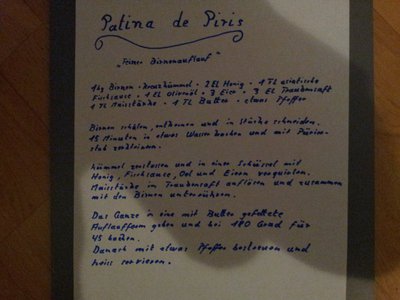 Patina de Piris
"Feiner Birnenauflauf"
1kg Birnen · Kreuzkümmel · 2 EL Honig · 1 TL asiatische
Fischsauce · 1 EL Olivenöl · 3 Eier · 3 EL Traubensaft
1 TL Maisstärke · 1 TL Butter · etwas Pfeffer
Birnen schälen, entkernen und in Stücke schneiden.
15 Minuten in etwas Wasser kochen und mit Pürier-
stab zerkleinern.
Kümmel zerstossen und in einer Schüssel mit
Honig, Fischsauce, Oel und Eiern verquirlen.
Maisstärke im Traubensaft auflösen und zusammen
mit den Birnen unterrühren.
Das Ganze in eine mit Butter gefettete
Auflaufform geben und bei 180 Grad für
45 backen.
Danach mit etwas Pfeffer bestreuen und
heiss servieren.